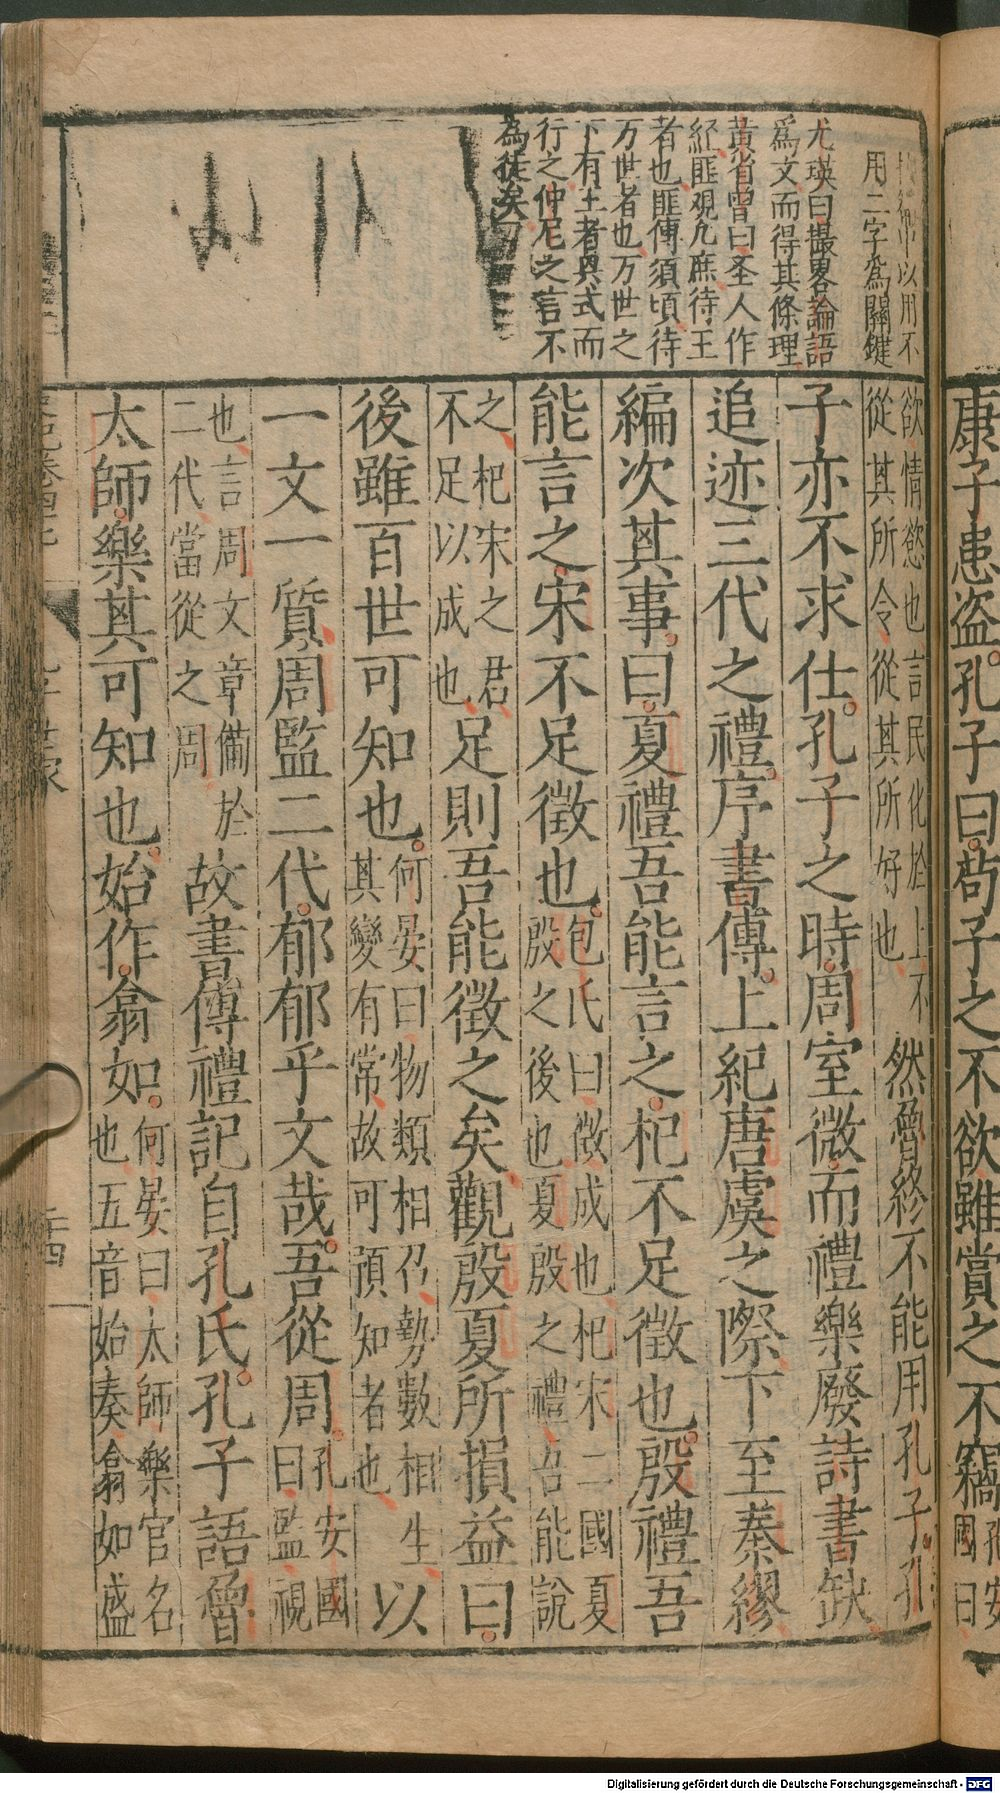 康子患盗孔子曰苟子之不欲雖賞之不竊孔安
國曰
以用不
用二字為關鍵
尤瑛曰撮畧論語
為文而得其條理
黃省曾曰圣人作
経匪覬九庶待王
者也匪傳須頃待
万世者也万世之
下有王者異式而
行之仲尼之言不
為徒矣
欲情慾也言民化於上不
從其所令從其所好也
然魯終不能用孔子孔
子亦不求仕孔子之時周室微而禮樂廢詩書缺
追迹三代之禮序書傳上紀唐虞之際下至秦繆
編次其事曰夏禮吾能言之杞不足徵也殷禮吾
能言之宋不足徵也包氏曰徴成也杞宋二國夏
殷之後也夏殷之禮吾能說
之杞宋之君
不足以成也
足則吾能徵之矣觀殷夏所損益曰
後雖百世可知也何晏曰物類相召勢數相生
其變有常故可預知者也
以
一文一質周監二代郁郁乎文哉吾從周孔安國
曰監視
也言周文章備於
二代當從之周
故書傳禮記自孔氏孔子語魯
太師樂其可知也始作翕如何晏曰太師樂官名
也五音始奏翕如盛
二十四
Digitalisierung gefördert durch die Deutsche Forschungsgemeinschaft - DFG